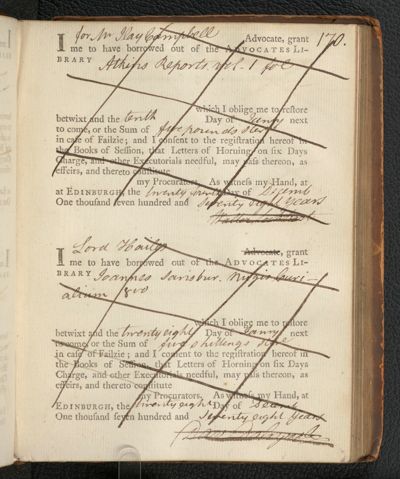 for Mr Ilay Campbell 170.
I Advocate, grant
me to have borrowed out of the ADVOCATES LI-
BRARY Atkins Reports vol. 1 fol
which I oblige me to restore
betwixt and the tenth Day of Janry next
to come, or the Sum of five pounds ster
in case of Failzie; and I consent to the registration hereof in
the Books of Session, that Letters of Horning on six Days
Charge, and other Executorials needful, may pass thereon, as
effeirs, and thereto constitute
my Procurators. As witness my Hand, at
EDINBURGH, the twenty Day of Decemb
One thousand seven hundred and Seventy eight years
Lord Hailes
I Advocate, grant
me to have borrowed out of the ADVOCATES LI-
BRARY Joannes Sarisbur. Nugis Curi-
alium 8vo
which I oblige me to restore
betwixt and the twenty eight Day of Janry next
to come, or the Sum of five shillings
in case of Failzie; and I consent to the registration hereof in
the Books of Session, that Letters of Horning on six Days
Charge, and other Executorials needful, may pass thereon, as
effeirs, and thereto constitute
my Procurators. As witness my Hand, at
EDINBURGH, the twenty eight Day of Decem
One thousand seven hundred and Seventy eight Years